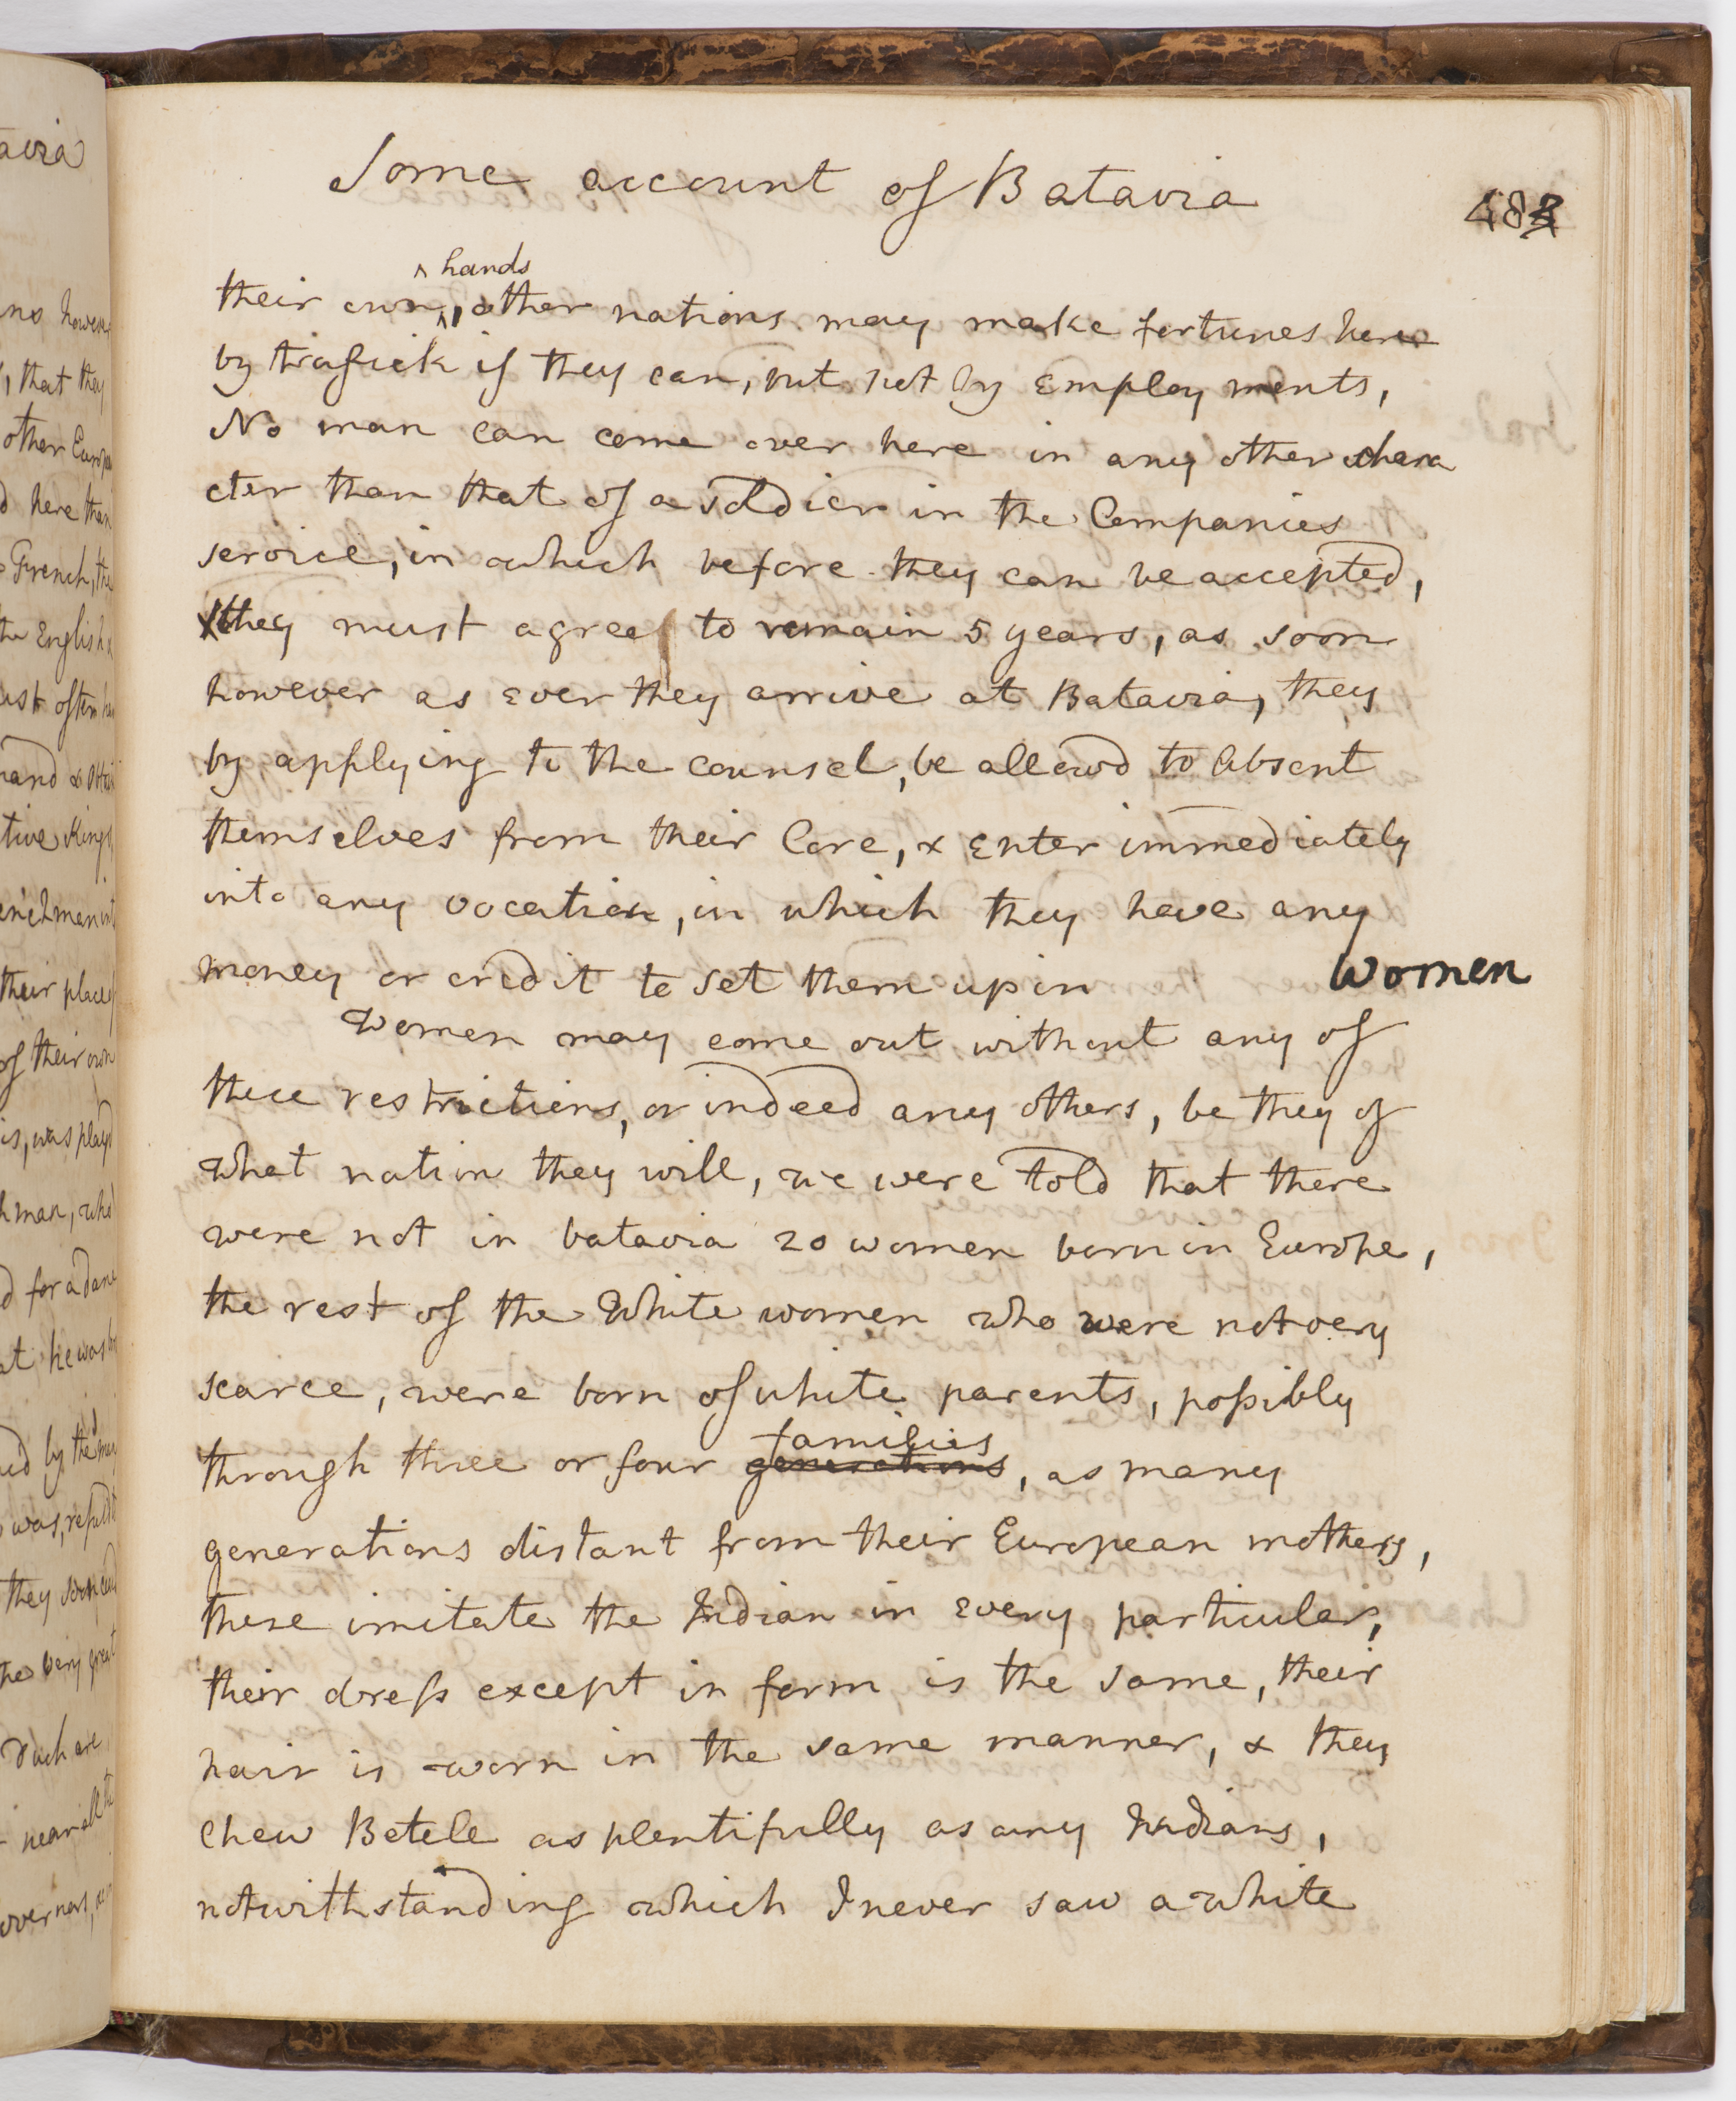 Some account of Batavia
483
hands
their own, other nations may make fortunes here
by trafick if they can, but not by Employments,
No man can come over here in any other chara
cter than that of a soldier in the Companies
service, in which before they can be accepted,
they must agree to remain 5 years, as soon
however as ever they arrive at Batavia, they
by applying to the counsel, be allowd to absent
themselves from their Core, & Enter immediately
into any vocation, in which they have any
money or credit to set them up in
Women
Women may come out without any of
these restrictions, or indeed any others, be they of
what nation they will, we were told that there
were not in batavia 20 women born in Europe,
the rest of the White women who were not very
scarce, were born of white parents, possibly
families
through three or four generations, as many
generations distant from their European mothers,
these imitate the Indian in every particular,
their dress except in form is the same, their
hair is worn in the same manner, & they
chew Betele as plentifully as any Indians,
notwithstanding which I never saw a white